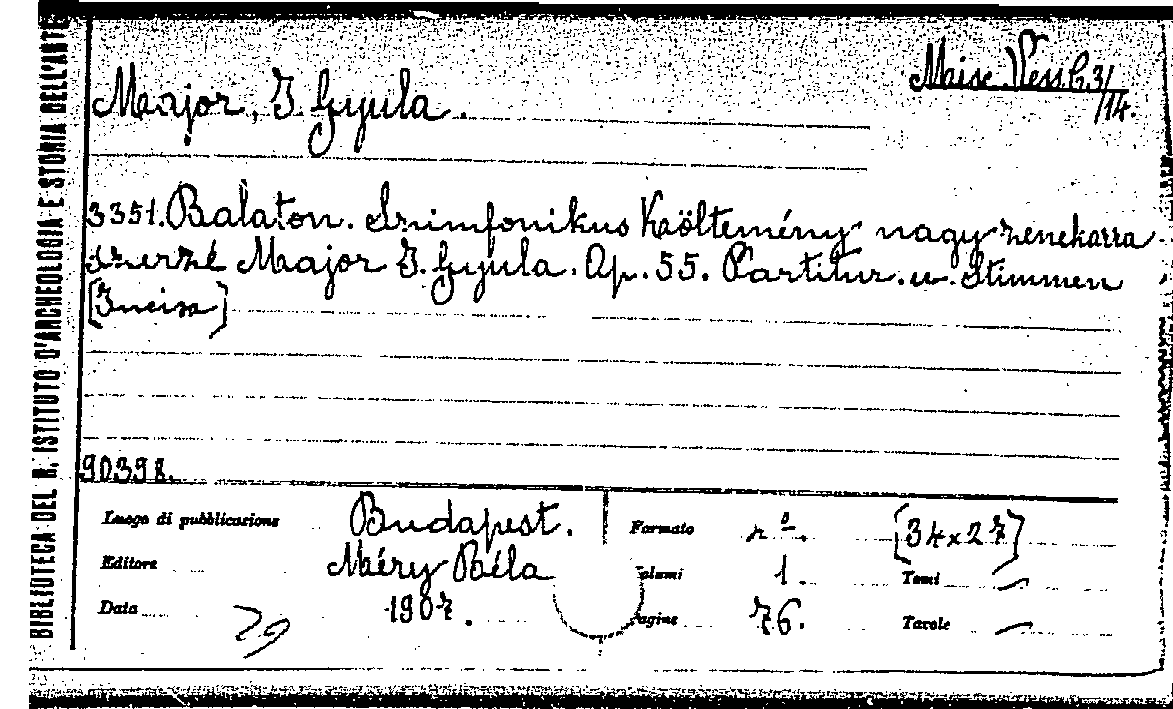 BIBLIOTECA DEL R. ISTITUTO D'ARCHEOLOGIA E STORIA DELL'ARTE
3/14.
Major, J. Gyula.
3351. Balaton. Szimfonikus Költemény nagy zenekarra
szerzé Major J. Gyula. Op. 55. Partitur. u. Stimmen
[Incisa]
90398.
Luogo di pubblicazione Budapest. Formato [34x27]
Editore Méry Béla Volumi 1. Tomi —
Data 1907. Pagine 76. Tavole —
29